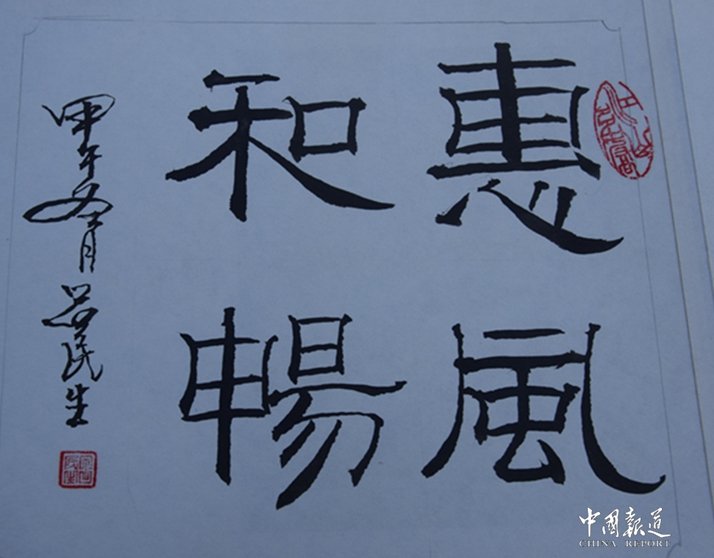 惠風
和暢
甲午 月 民生
中國報道
CHINA REPORT